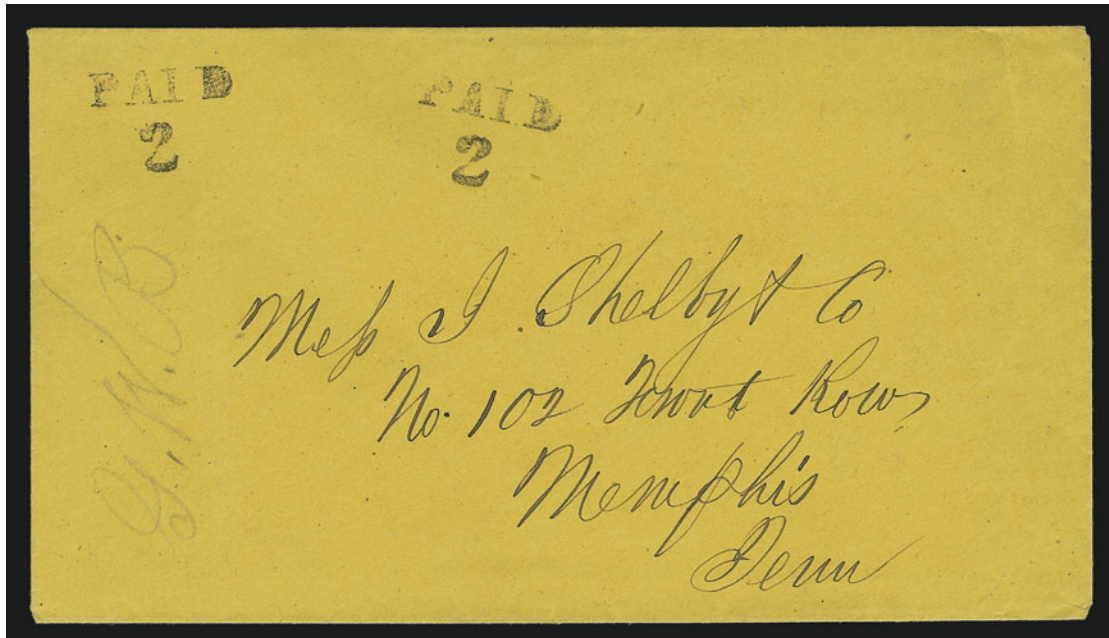 PAID
2
PAID
2
Mess J. Shelby & Co
No. 102 Front Row
Memphis
Tenn
G. W. B.